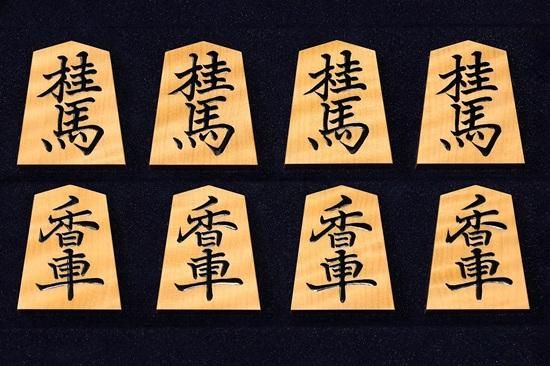 桂馬 桂馬 桂馬 桂馬
香車 香車 香車 香車